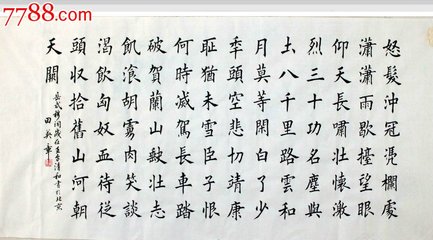 7788.com
怒髮沖冠凴欄處
瀟瀟雨歇擡望眼
仰天長嘯壯懷激
烈三十功名塵與
土八千里路雲和
月莫等閑白了少
秊頭空悲切靖康
耻猶未雪臣子恨
何時滅駕長車踏
破賀蘭山缺壯志
飢飡胡虜肉笑談
渴飲匈奴血待從
頭收拾舊山河朝
天闕
岳武穆詞歲在清和書於北京
田英章